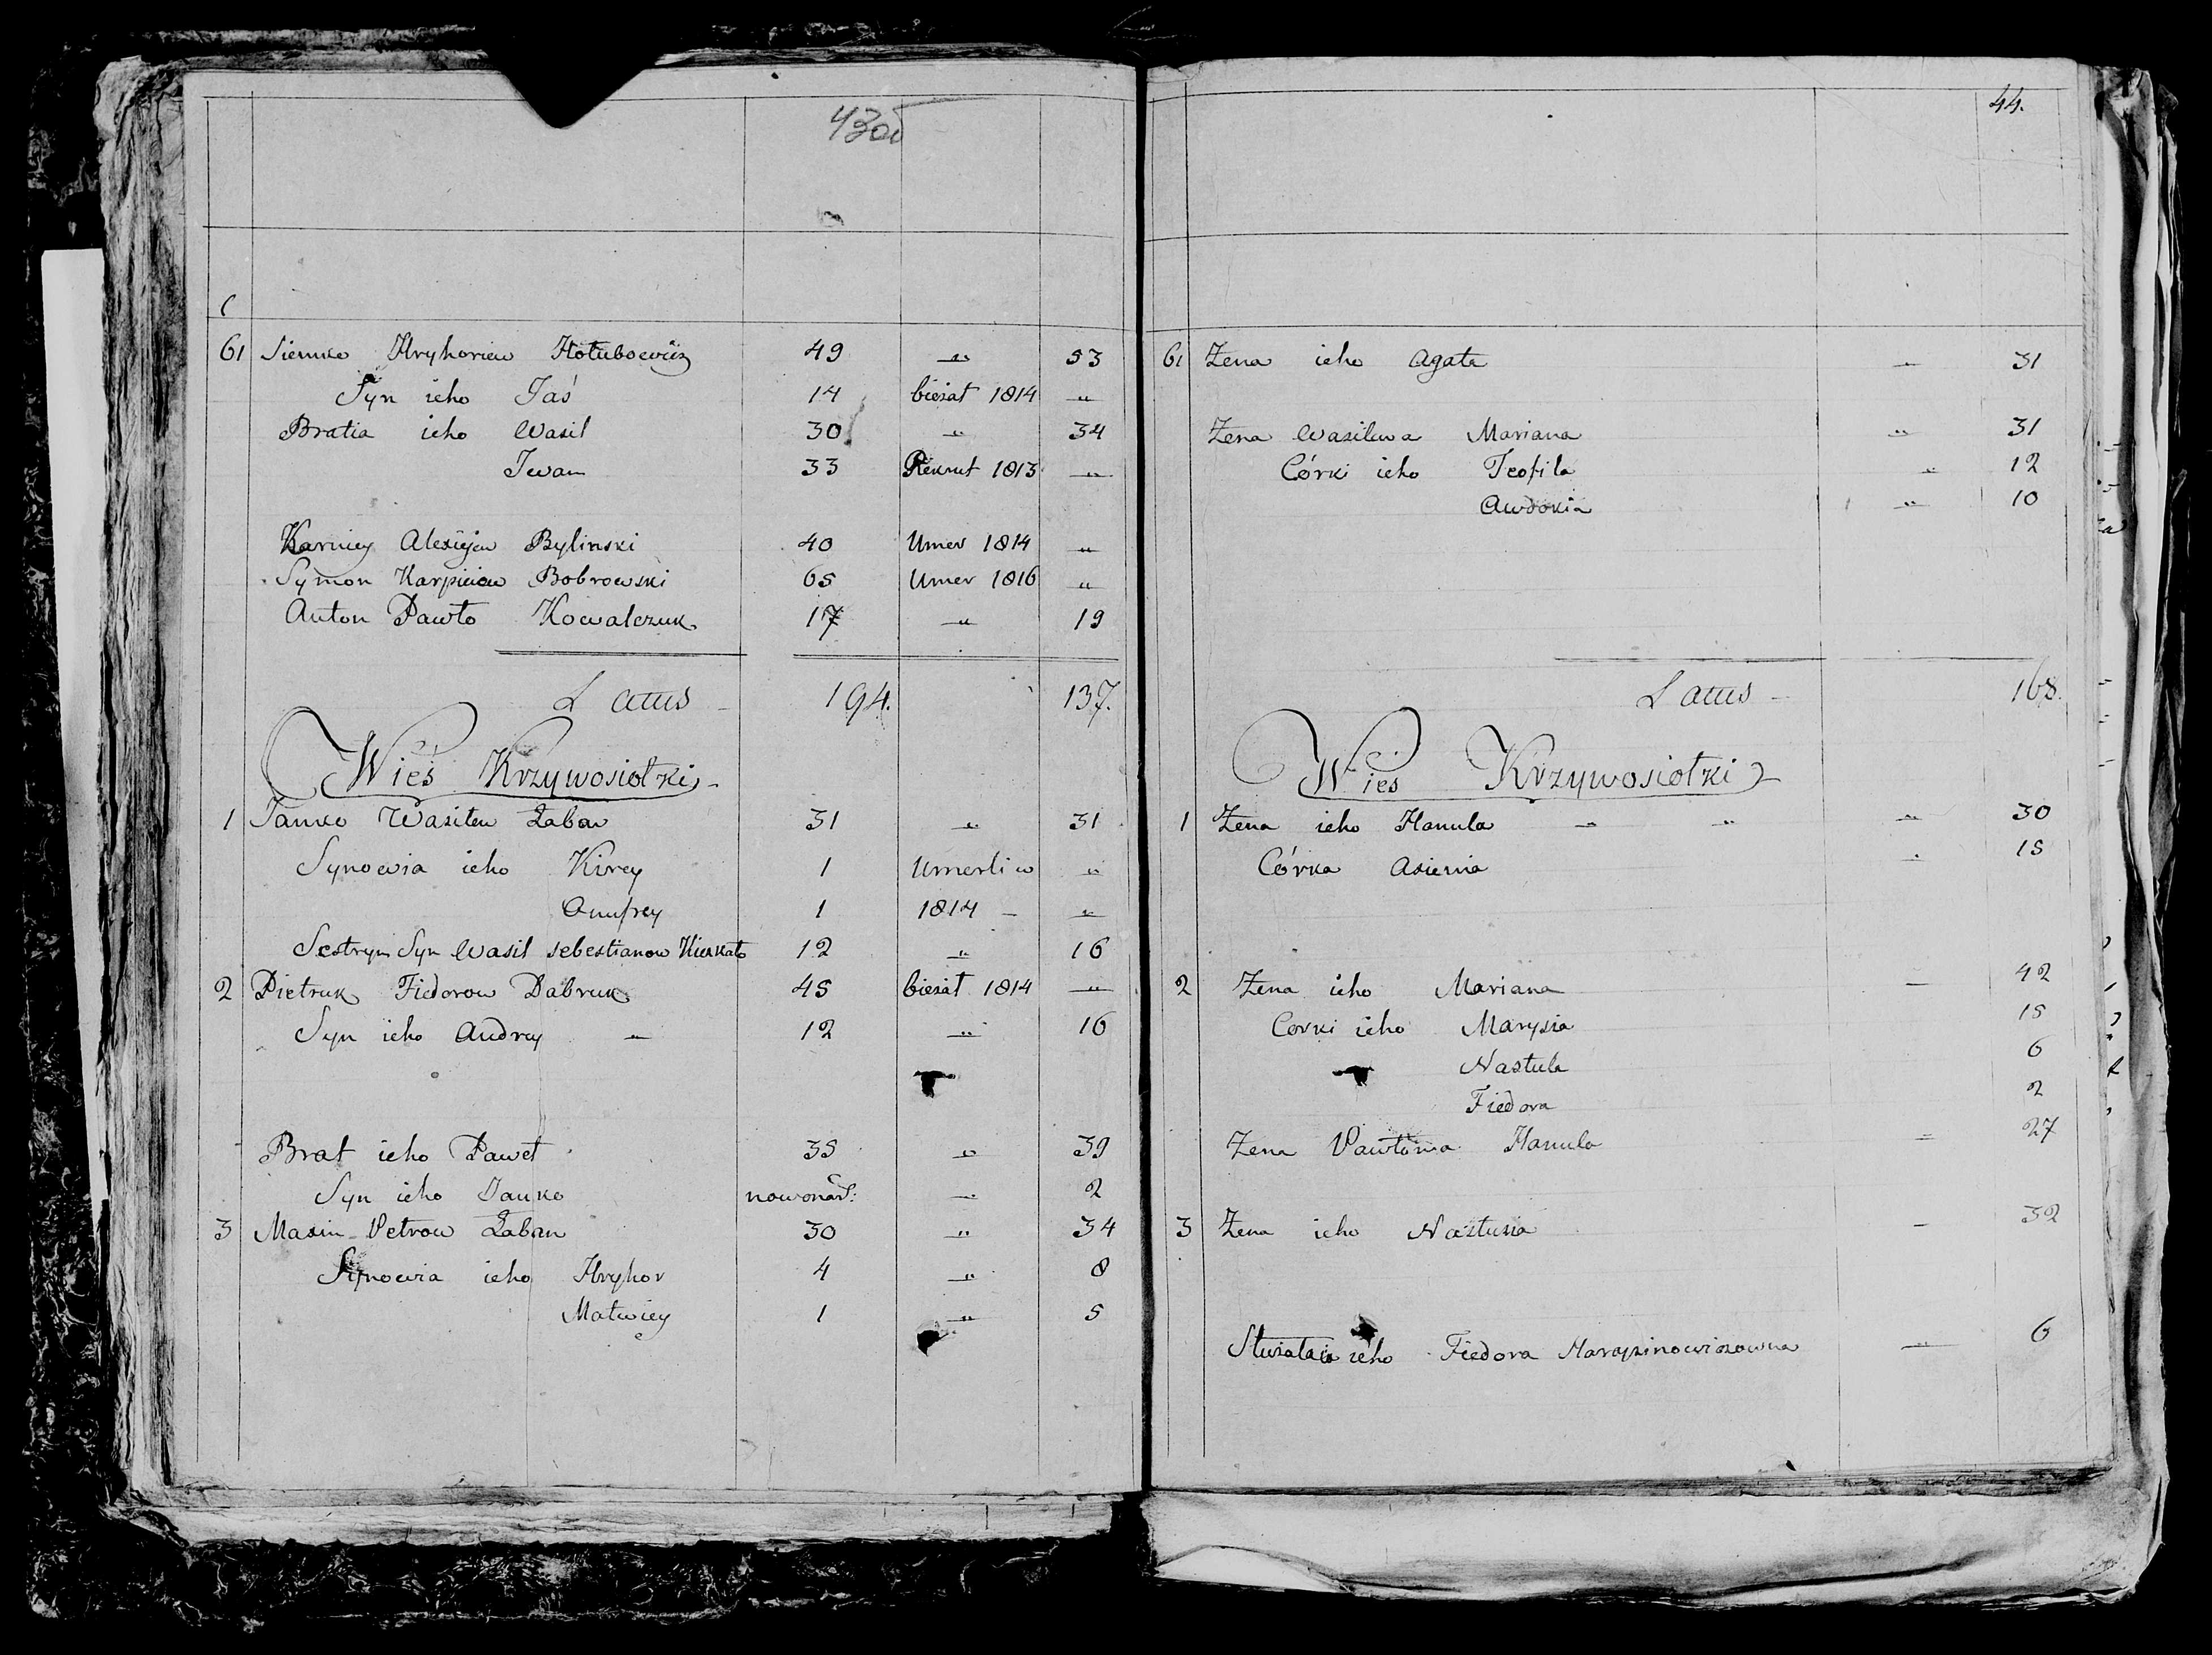 43об
61 Siemko Hryhoriew Hołubowicz 49 „ 53
Syn ieho Jaś 14 bieżat 1814 „
Bratia ieho Wasil 30 „ 34
Iwan 33 Rekrut 1813 „
Karniey Alexiejew Bylinski 40 Umer 1814 „
Symon Karpiciow Bobrowski 65 Umer 1816 „
Anton Pawło Kowalczuk 17 „ 19
Latus 194. 137.
Wieś Krzywosiołki
1 Janko Wasilew Łaban 31 „ 31
Synowia ieho Kirey 1 Umerli w „
Anufrey 1 1814 „
Sestryn Syn Wasil Sebestianow 12 „ 16
2 Pietruk Fiedorow Dabruk 45 bieżat 1814 „
Syn ieho Andrey „ 12 „ 16
Brat ieho Paweł 35 „ 39
Syn ieho Janko nowonar: „ 2
3 Maxim Petrow Łaban 30 „ 34
Synowia ieho Hryhor 4 „ 8
Matwiey 1 „ 5
44.
61 Żena ieho Agata „ 31
Żena Wasilewa Mariana „ 31
Córki ieho Teofila „ 12
Awdokia „ 10
Latus 168.
Wieś Krzywosiołki
1 Żena ieho Hanula „ „ „ 30
Córka Axienia „ 15
2 Żena ieho Mariana „ 42
Corki ieho Marysia 15
Nastula 6
Fiedora 2
Żena Pawłowa Hanula „ 27
3 Żena ieho Nastusia „ 32
ieho Fiedora „ 6